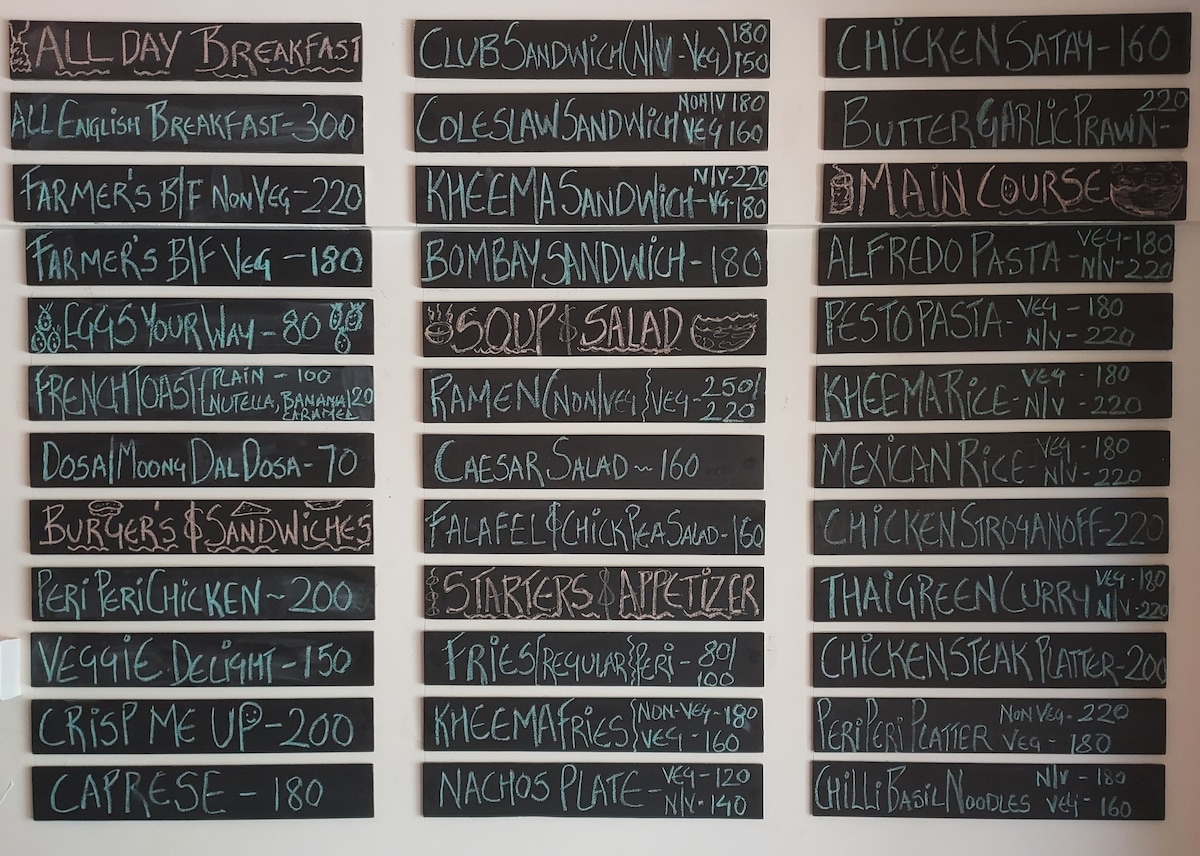 ALL DAY BREAKFAST
ALL ENGLISH BREAKFAST-300
FARMER'S B/F NON VEG-220
FARMER'S B/F VEG -180
EGGS YOUR WAY - 80
FRENCH TOAST PLAIN - 100
NUTELLA, BANANA 120
CARAMEL
DOSA/MOONG DAL DOSA-70
BURGER'S & SANDWICHES
PERI PERI CHICKEN ~ 200
VEGGIE DELIGHT -150
CRISP ME UP -200
CAPRESE - 180
CLUB SANDWICH (N/V -VEG) 180
150
COLESLAW SANDWICH NON/V 180
VEG 160
KHEEMA SANDWICH N/V-220
-VG-180
BOMBAY SANDWICH -180
SOUP & SALAD
RAMEN (NON/VEG) VEG - 250/
220
CAESAR SALAD ~ 160
FALAFEL & CHICKPEA SALAD -160
STARTERS & APPETIZER
FRIES (REGULAR) PERI - 80/
100
KHEEMA FRIES NON-VEG-180
VEG - 160
NACHOS PLATE - VEG - 120
N/V - 140
CHICKEN SATAY- 160
BUTTER GARLIC PRAWN- 220
MAIN COURSE
ALFREDO PASTA - VEG-180
N/V-220
PESTO PASTA- VEG - 180
N/V - 220
KHEEMA RICE- VEG - 180
N/V - 220
MEXICAN RICE- VEG - 180
N/V - 220
CHICKEN STROGANOFF-220
THAI GREEN CURRY VEG - 180
N/V-220
CHICKEN STEAK PLATTER-200
PERI PERI PLATTER NON VEG- 220
VEG - 180
CHILLI BASIL NOODLES N/V - 180
VEG - 160